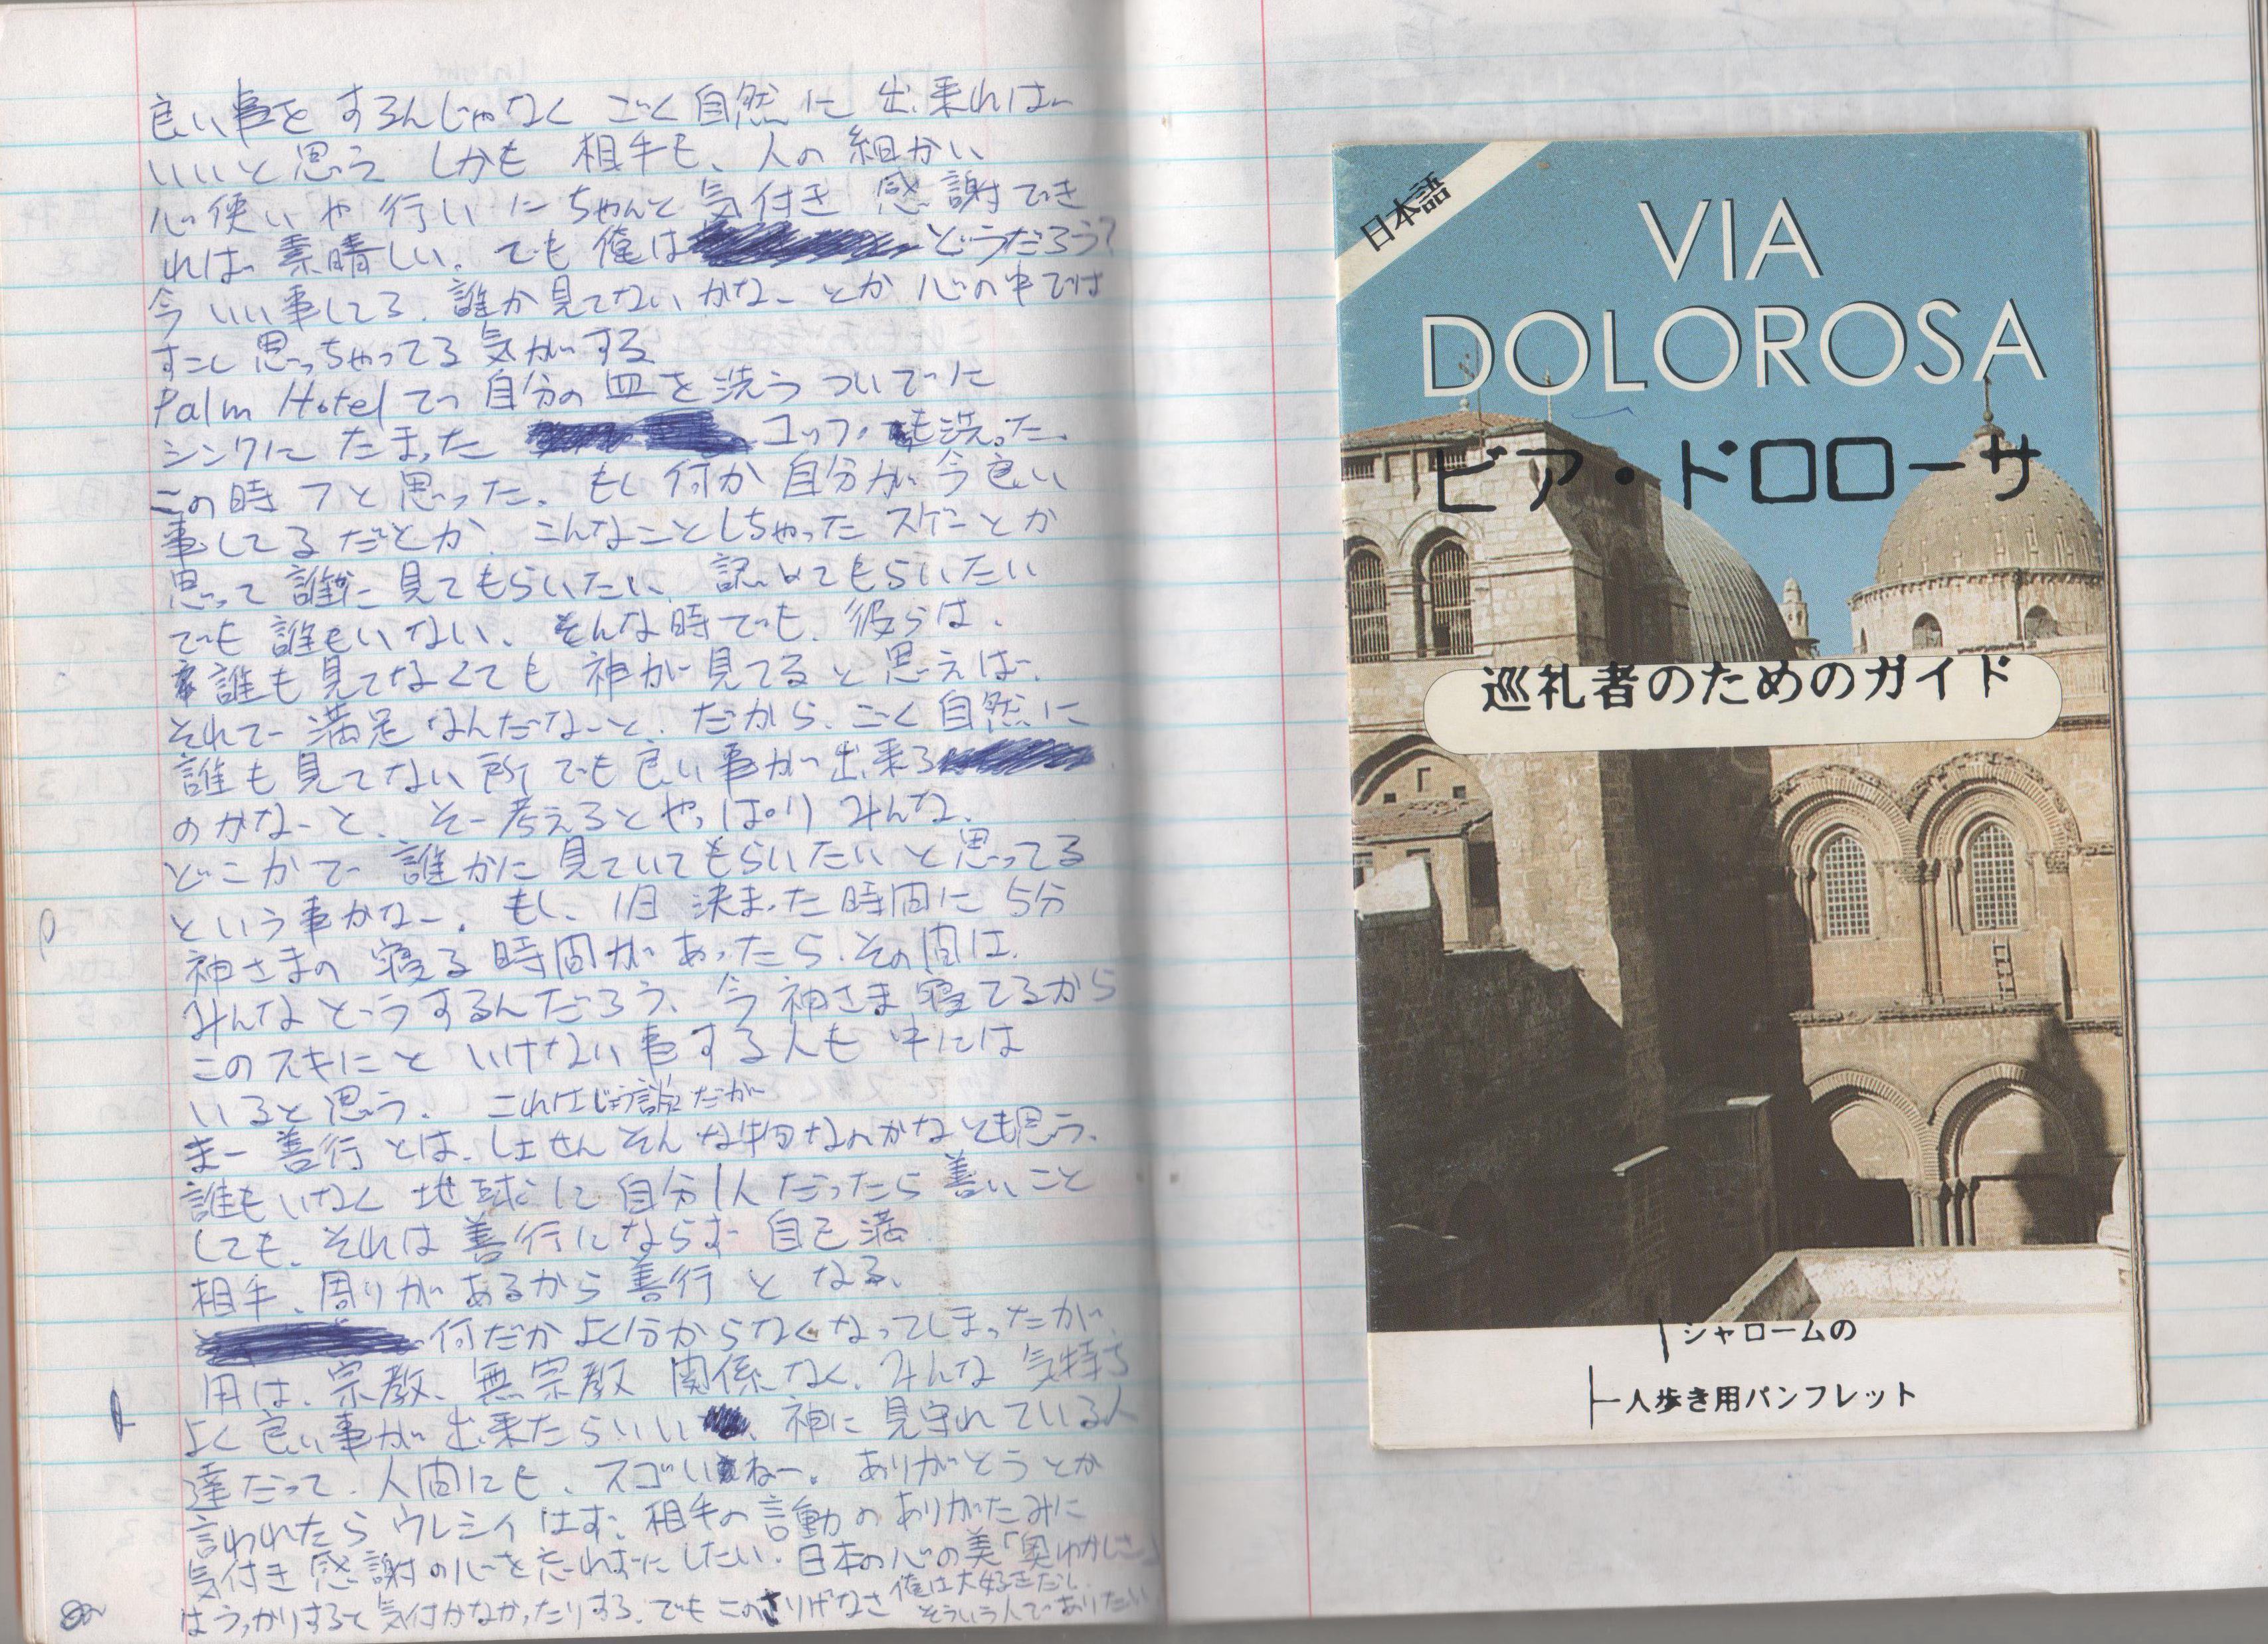 良い事をするんじゃなく ごく自然に 出来れば
いいと思う しかも 相手も、人の細かい
心使いや行いにちゃんと気付き 感謝でき
れば 素晴しい。でも 俺は どうだろう?
今いい事してる、誰か見てないかなーとか 心の中では
すこし思っちゃってる気がする
Palm Hotelで 自分の皿を洗うついでに
シンクにたまった コップも洗った。
この時フと思った。もし何か自分が今良い
事してるだとか、こんなことしちゃったスゲーとか
思って誰かに見てもらいたい、認めてもらいたい
でも誰もいない、そんな時でも、彼らは、
誰も見てなくても神が見てると思えば、
それで満足なんだなーと、だから、ごく自然に
誰も見てない所でも良い事が出来る
のかなーと、そー考えるとやっぱりみんな、
どこかで 誰かに見ていてもらいたいと思ってる
という事かなー。もし、1日 決まった時間に 5分
神さまの 寝る時間があったら、その間は、
みんなどうするんだろう、今神さま寝てるから
このスキにと いけない事する人も 中には
いると思う。 これはじょう談だが
まー善行とは、しょせんそんな物なのかなとも思う、
誰もいなく 地球に自分1人だったら 善いこと
しても、それは善行にならず 自己満
相手、周りがあるから善行となる、
何だかよく分からなくなってしまったが、
用は、宗教、無宗教 関係なく、みんな 気持ち
よく良い事が出来たらいい、神に見守れている人
達だって、人間にも、スゴいねー。ありがとうとか
言われたらウレシイはず、相手の言動のありがたみに
気付き感謝の心を忘れずにしたい。日本の心の美「奥ゆかしさ」
はうっかりすると気付かなかったりする。でもこのさりげなさ 俺は大好きだし
そういう人でありたい
日本語
VIA
DOLOROSA
ビア・ドロローサ
巡礼者のためのガイド
シャロームの
一人歩き用パンフレット